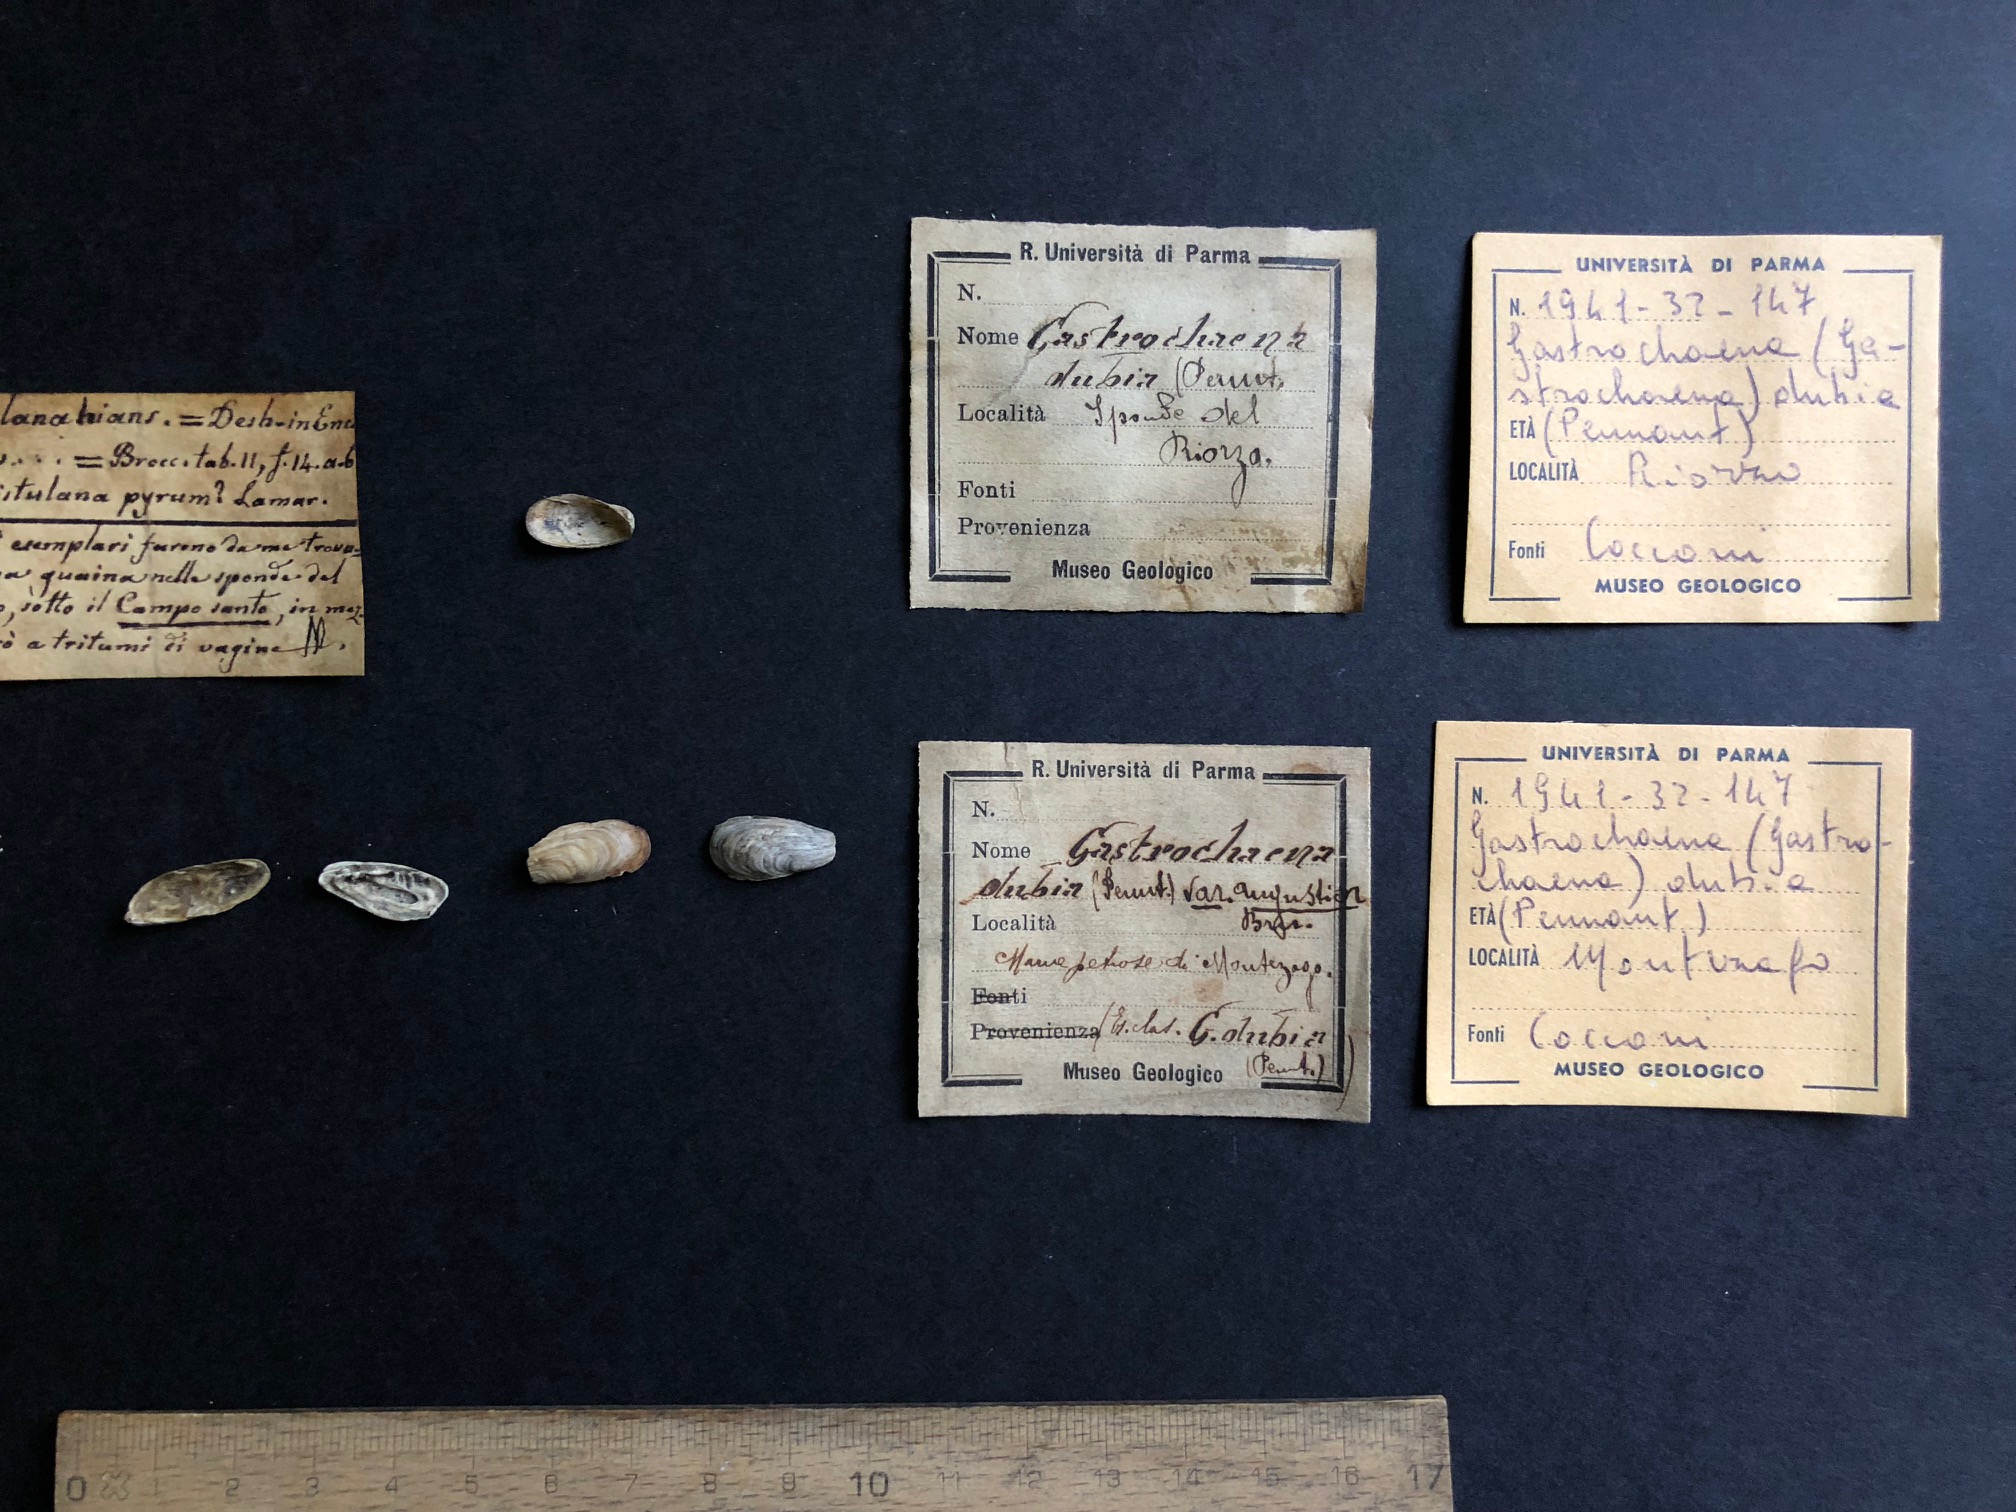 lana hians. = Desh. in Enc
. . . = Brocc. tab. 11, f. 14. a-b
istulana pyrum? Lamar.
esemplari furono da me trova-
a guaina nelle sponde del
o, sotto il Campo santo, in mez-
ò a tritumi di vagine
R. Università di Parma
N.
Nome Gastrochaena
dubia (Pennt.
Località Sponde del
Riorzo.
Fonti
Provenienza
Museo Geologico
UNIVERSITÀ DI PARMA
N. 1941-32-147
Gastrochaena (Ga-
strochaena) dubia
ETÀ (Pennant)
LOCALITÀ Riorzo
Fonti Cocconi
MUSEO GEOLOGICO
R. Università di Parma
N.
Nome Gastrochaena
dubia (Pennt.) var. angustior
Località Brn.
Marne petrose di Montezago.
Fonti
Provenienza (Es. clas. G. dubia
Museo Geologico (Pennt.))
UNIVERSITÀ DI PARMA
N. 1941-32-147
Gastrochaena (Gastro-
chaena) dubia
ETÀ (Pennant)
LOCALITÀ Montezago
Fonti Cocconi
MUSEO GEOLOGICO
0 1 2 3 4 5 6 7 8 9 10 11 12 13 14 15 16 17